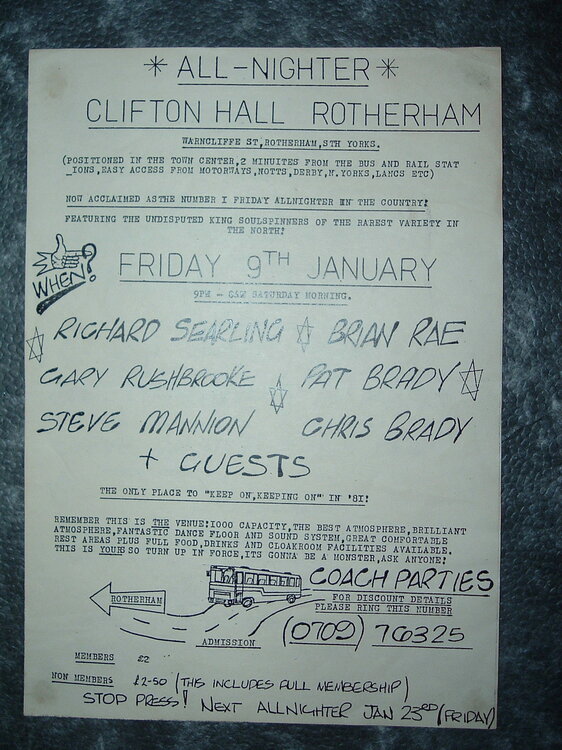 * ALL-NIGHTER *
CLIFTON HALL ROTHERHAM
WARNCLIFFE ST,ROTHERHAM,STH YORKS.
(POSITIONED IN THE TOWN CENTER,2 MINUITES FROM THE BUS AND RAIL STAT
_IONS,EASY ACCESS FROM MOTORWAYS,NOTTS,DERBY,N.YORKS,LANCS ETC)
NOW ACCLAIMED ASTHE NUMBER I FRIDAY ALLNIGHTER IN THE COUNTRY!
FEATURING THE UNDISPUTED KING SOULSPINNERS OF THE RAREST VARIETY IN
THE NORTH!
WHEN?
FRIDAY 9TH JANUARY
9PM - SATURDAY MORNING.
RICHARD SEARLING BRIAN RAE
GARY RUSHBROOKE PAT BRADY
STEVE MANNION CHRIS BRADY
+ GUESTS
THE ONLY PLACE TO "KEEP ON,KEEPING ON" IN '8I!
REMEMBER THIS IS THE VENUE!I000 CAPACITY,THE BEST ATMOSPHERE,BRILLIANT
ATMOSPHERE,FANTASTIC DANCE FLOOR AND SOUND SYSTEM,GREAT COMFORTABLE
REST AREAS PLUS FULL FOOD,DRINKS AND CLOAKROOM FACILITIES AVAILABLE.
THIS IS SO TURN UP IN FORCE,ITS GONNA BE A MONSTER,ASK ANYONE!
COACH PARTIES
ROTHERHAM
FOR DISCOUNT DETAILS
PLEASE RING THIS NUMBER
(0709) 76325
ADMISSION
MEMBERS £2
NON MEMBERS £2-50 (THIS INCLUDES FULL MEMBERSHIP)
STOP PRESS! NEXT ALLNIGHTER JAN 23RD (FRIDAY)